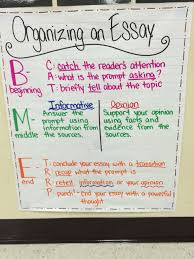 Organizing an Essay
B- beginning
C: catch the reader's attention
A: what is the prompt asking?
T: briefly tell about the topic
M- middle
Informative
Answer the prompt using information from the sources.
Opinion
Support your opinion using facts and evidence from the sources.
E- end
T- conclude your essay with a transition
R- recap what the prompt is
R- retell information or your opinion
P- "punch" - End your essay with a powerful thought